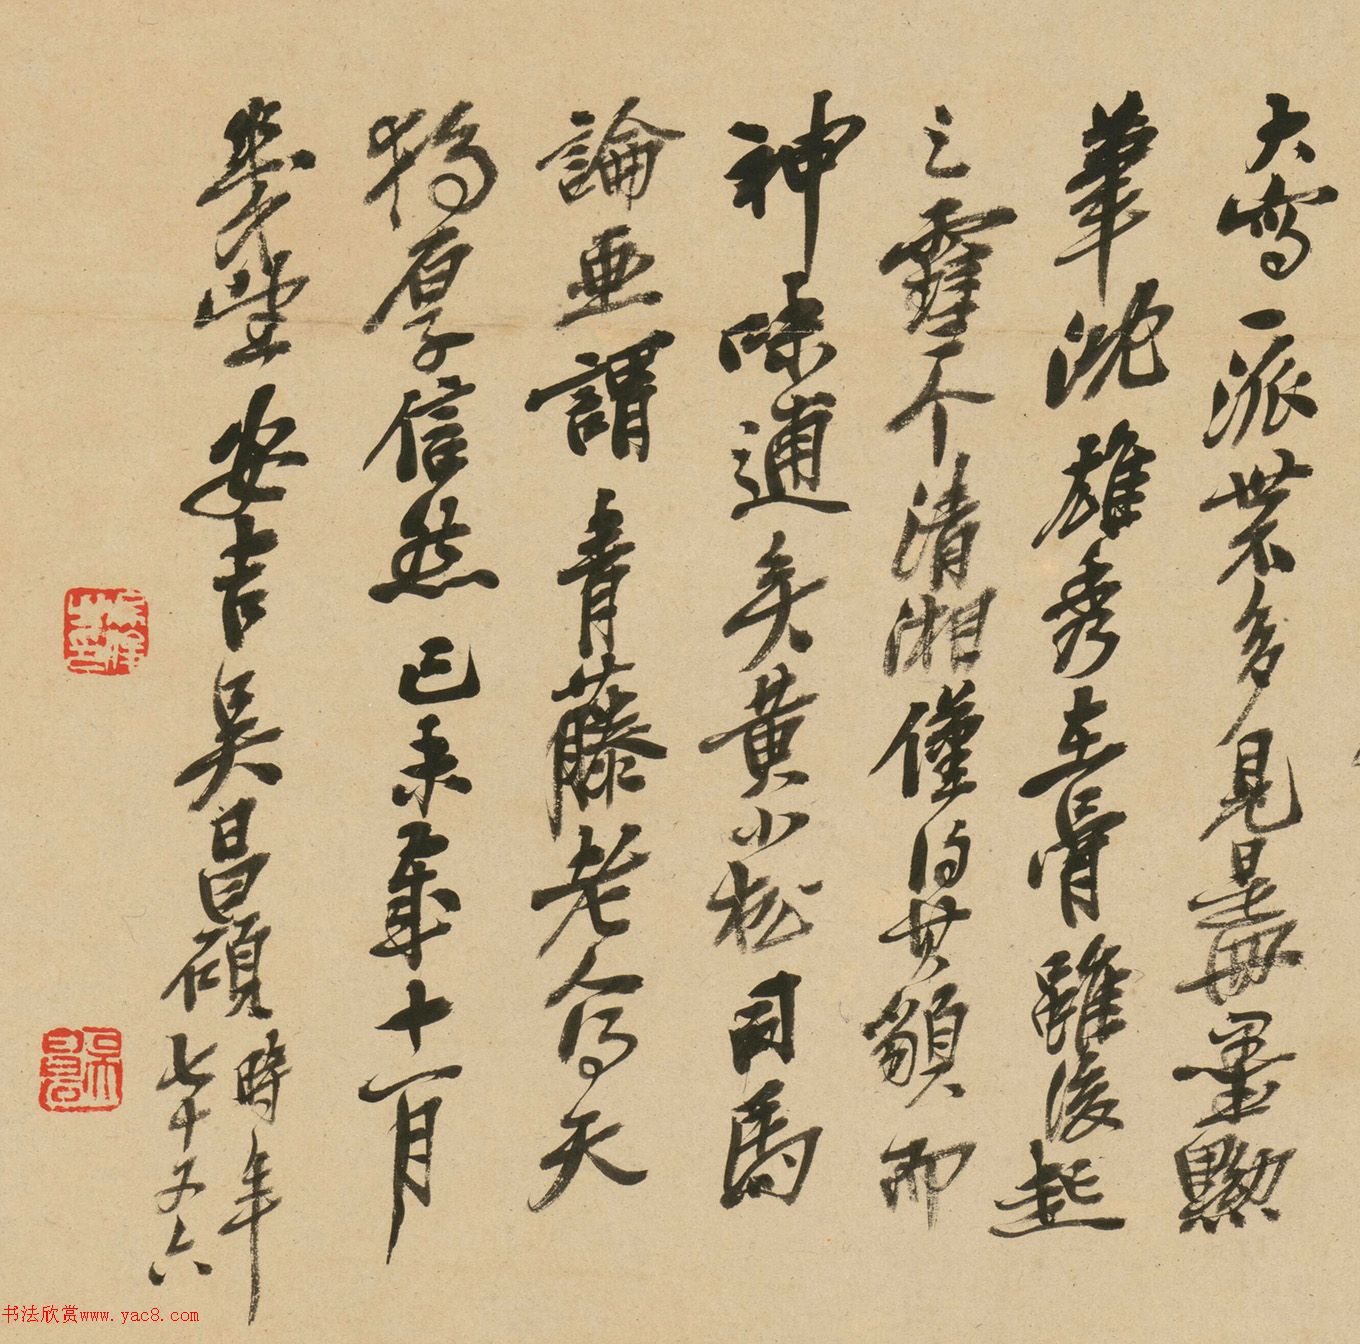 大寫一派世不多見是冊墨黝
筆沈雄秀在骨雖後起
之雪个清湘僅得其貌而
神味逋矣黃小松司馬
論畫謂青藤老人得天
獨厚信然己未年十一月
安吉吳昌碩時年
七十又六
书法欣赏www.yac8.com